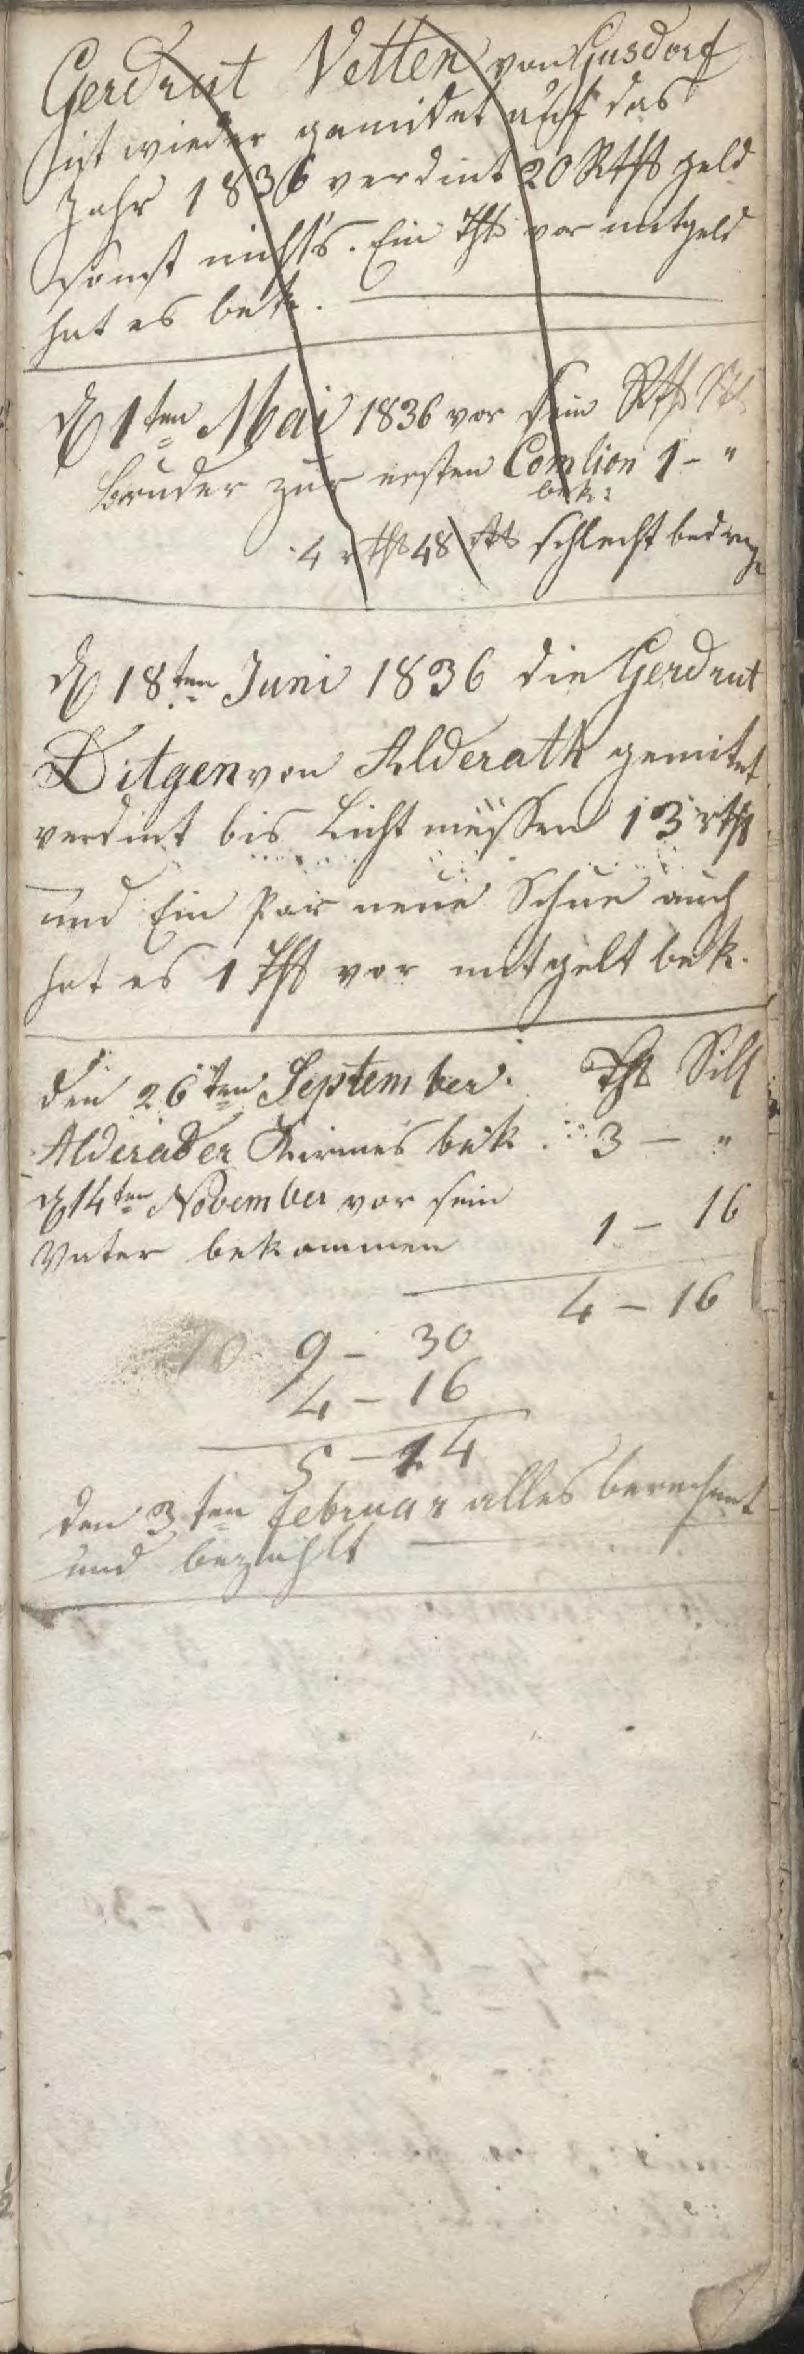 Gerdrut Vetten von Gusdorf
ist wieder gemidet auf das
Jahr 1836 verdint 20 Rths geld
sonst nichts. Ein Ths vor mitgeld
hat es bek.
D 1ten Mai 1836 vor sein Rths
Bruder zur ersten Comlion 1 - "
bek:
4 rths 48 schlecht bedrage
D 18ten Juni 1836 die Gerdrut
Ditgen von Alderath gemitet
verdint bis Lichtmessen 13 rths
und Ein Par neue Schue auch
hat es 1 Ths vor mitgelt bek.
den 26ten September. Ths Silb
Alderader Kirmes bek. 3 - "
D 14ten November vor sein
Vater bekommen 1 - 16
4 - 16
10 9 - 30
4 - 16
5 - 14
den 3ten Februar alles berechnet
und bezahlt